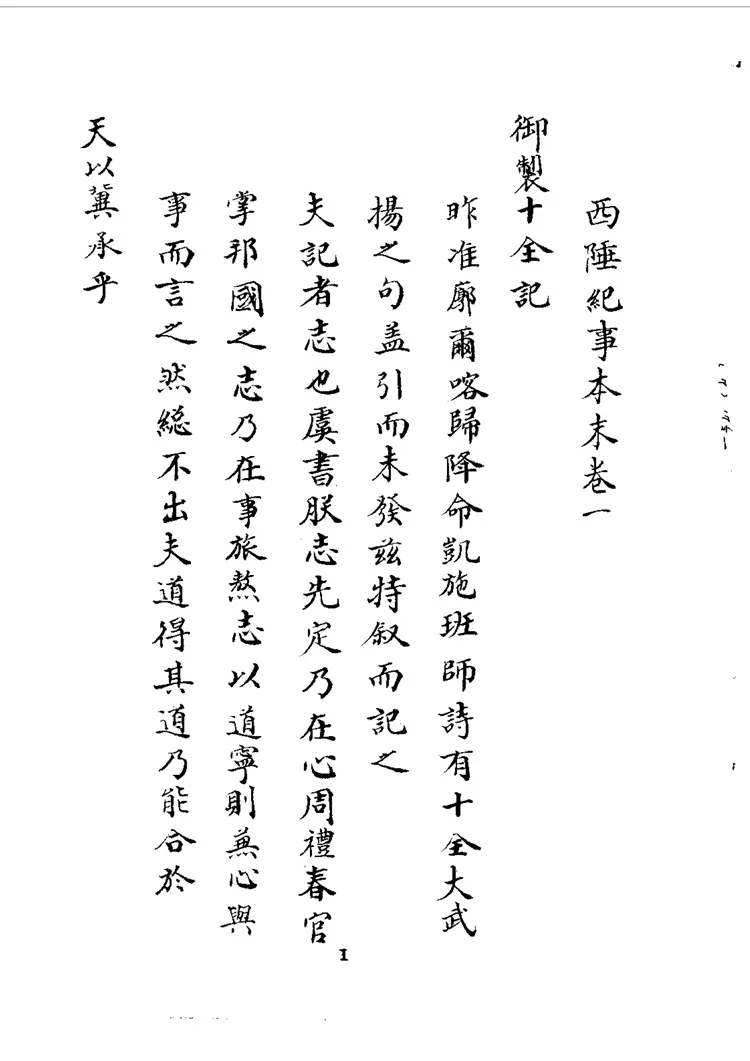 西陲紀事本末卷一
御製十全記
昨准廓爾喀歸降命凱旋班師詩有十全大武
揚之句盖引而未發茲特叙而記之
夫記者志也虞書朕志先定乃在心周禮春官
掌邦國之志乃在事旅獒志以道寧則兼心與
事而言之然総不出夫道得其道乃能合於
天以冀承乎
1